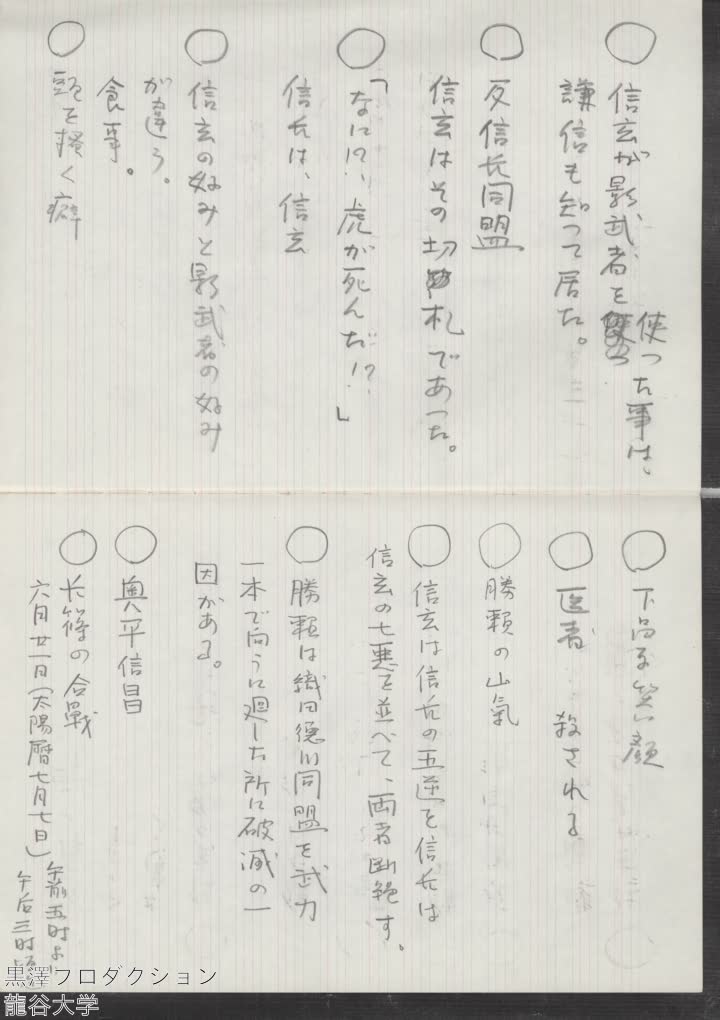 ○ 信玄が影武者を使った事は、
謙信も知って居た。
○ 反信長同盟
信玄はその切り札であった。
○ 「なに!?虎が死んだ!?」
信長は、信玄
○ 信玄の好みと影武者の好み
が違う。
食事。
○ 頭を掻く癖
○ 下品な笑い顔
○ 医者 殺される
○ 勝頼の山氣
○ 信玄は信長の五逆を信長は
信玄の七悪を並べて、両者断絶す。
○ 勝頼は織田徳川同盟を武力
一本で向うに廻した所に破滅の一
因がある。
○ 奥平信昌
○ 長篠の合戰
六月廿一日(太陽暦七月七日)午前五时より
午后三时頃
黒澤プロダクション
龍谷大学